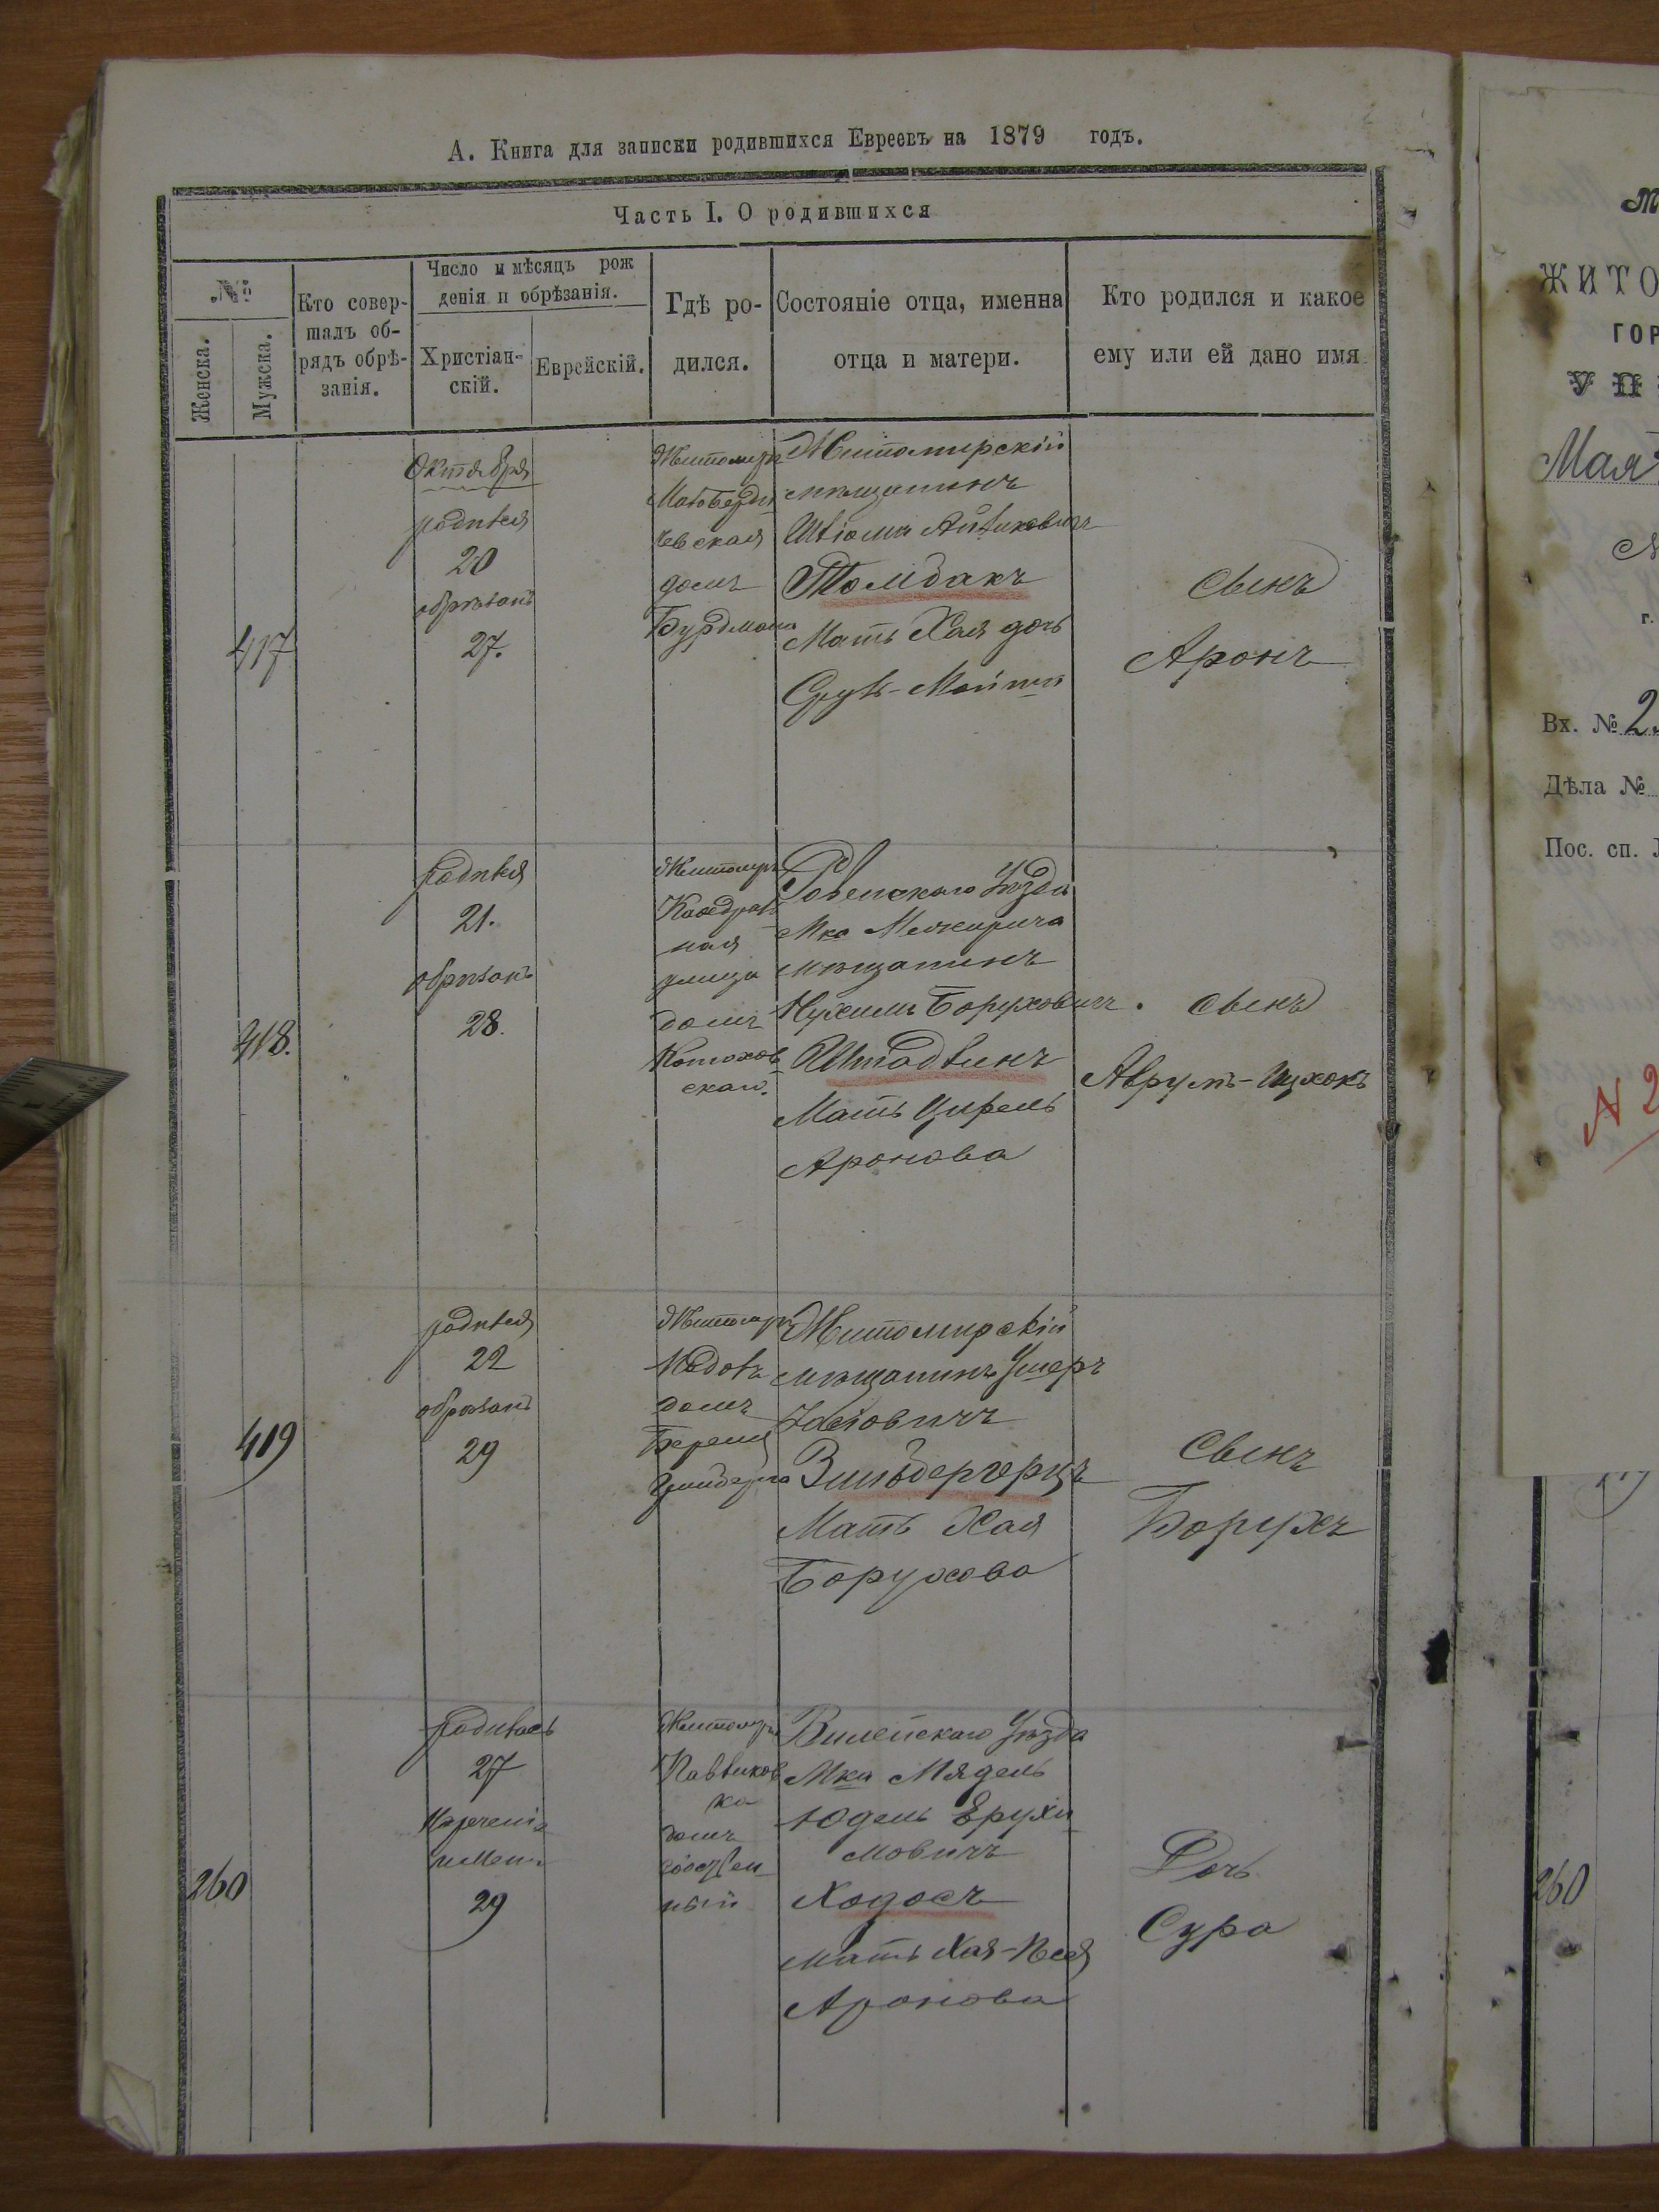 А. Книга для записки родившихся Евреевъ на 1879 годъ.
Часть I. О родившихся
№
Женска.
Мужска.
Кто совер-
шалъ об-
рядъ обрѣ-
занія.
Число и мѣсяцъ рож
денія и обрѣзанія.
Христіан-
скій.
Еврейскій.
Гдѣ ро-
дился.
Состояніе отца, именна
отца и матери.
Кто родился и какое
ему или ей дано имя
417
Октября
родился
20
обрѣзанъ
27.
Житомиръ
Малобердич
евская
домъ
Бурдмана
Житомирскій
мѣщанинъ
Мать Хая дочь
Сынъ
Аронъ
418.
родился
21.
обрѣзанъ
28.
Житомиръ
Каѳедраль
ная
улица
домъ
скаго.
Ровенскаго Уѣзда
Мка Межирича
мѣщанинъ
Нухимъ Боруховичъ
Штадвинъ
Мать Цирель
Аронова
сынъ
Аврумъ-Ицхокъ
419
родился
22
обрѣзанъ
29
Житомиръ
домъ
Житомирскій
мѣщанинъ Ушеръ
Зильбергерцъ
Мать Хая
Борухова
Сынъ
Борухъ
260
родилась
27
Нареченіе
имени
29
Житомиръ
Павликов
ка
домъ
собствен
ный
Вилейскаго Уѣзда
Мка Мядель
Юдель Ерухи
мовичъ
Ходосъ
Мать Хая-Песя
Аронова
Дочь
Сура
ЖИТО
ГОР
Мая
г.
Вх. № 2
Дѣла №
Пос. сп.
N 2
260